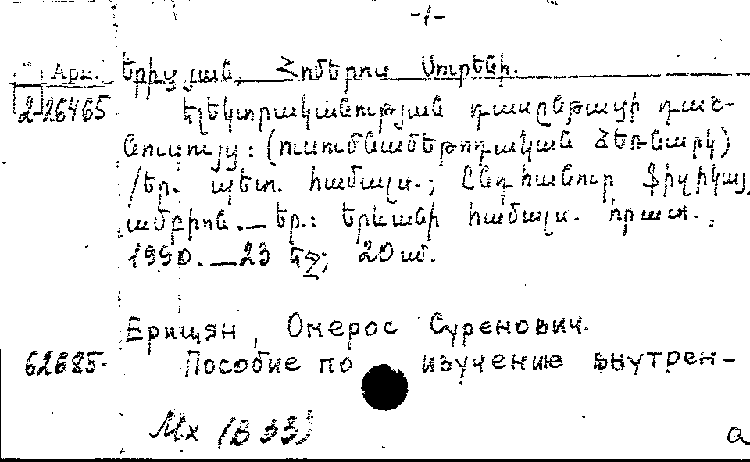 -1-
Арм. Երիցյան, Հոմերոս Սուրենի.
2-26465 Էլեկտրականության դասընթացի դաշ-
նուսույց: (ուսումնամեթոդական ձեռնարկ)
/Եր. պետ. համալս.; Ընդհանուր ֆիզիկայի
ամբիոն. — Եր.: Երևանի համալս. հրատ.,
1990. — 23 էջ; 20 սմ.
Ерицян, Омерос Суренович.
62685. Пособие по изучению внутрен-
Мх (В 33) а